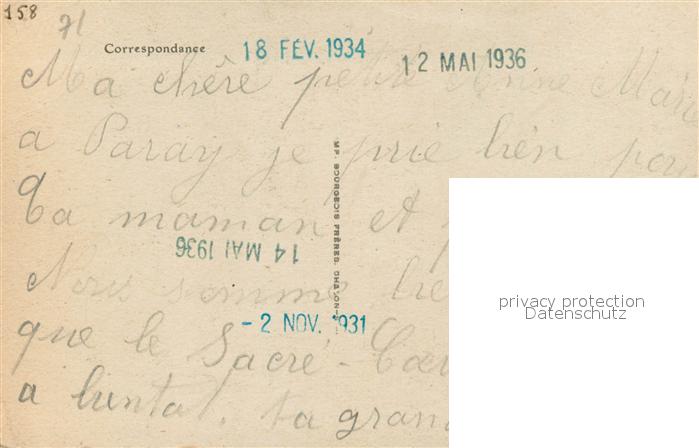 158
71
Correspondance
18 FÉV. 1934
12 MAI 1936
Ma chère petite Anne Marie
a Paray je prie bien pour
ta maman et
MP. BOURGEOIS FRÈRES, CHALON-S
14 MAI 1936
Nous sommes
privacy protection
Datenschutz
- 2 NOV. 1931
que le Sacré-Cœur
a bientot. ta grand